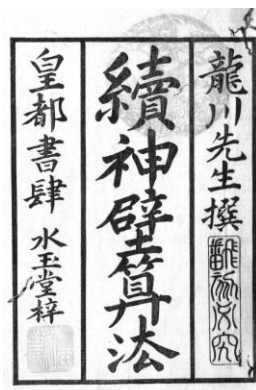 龍川先生撰
續神壁算法
皇都書肆 水玉堂梓